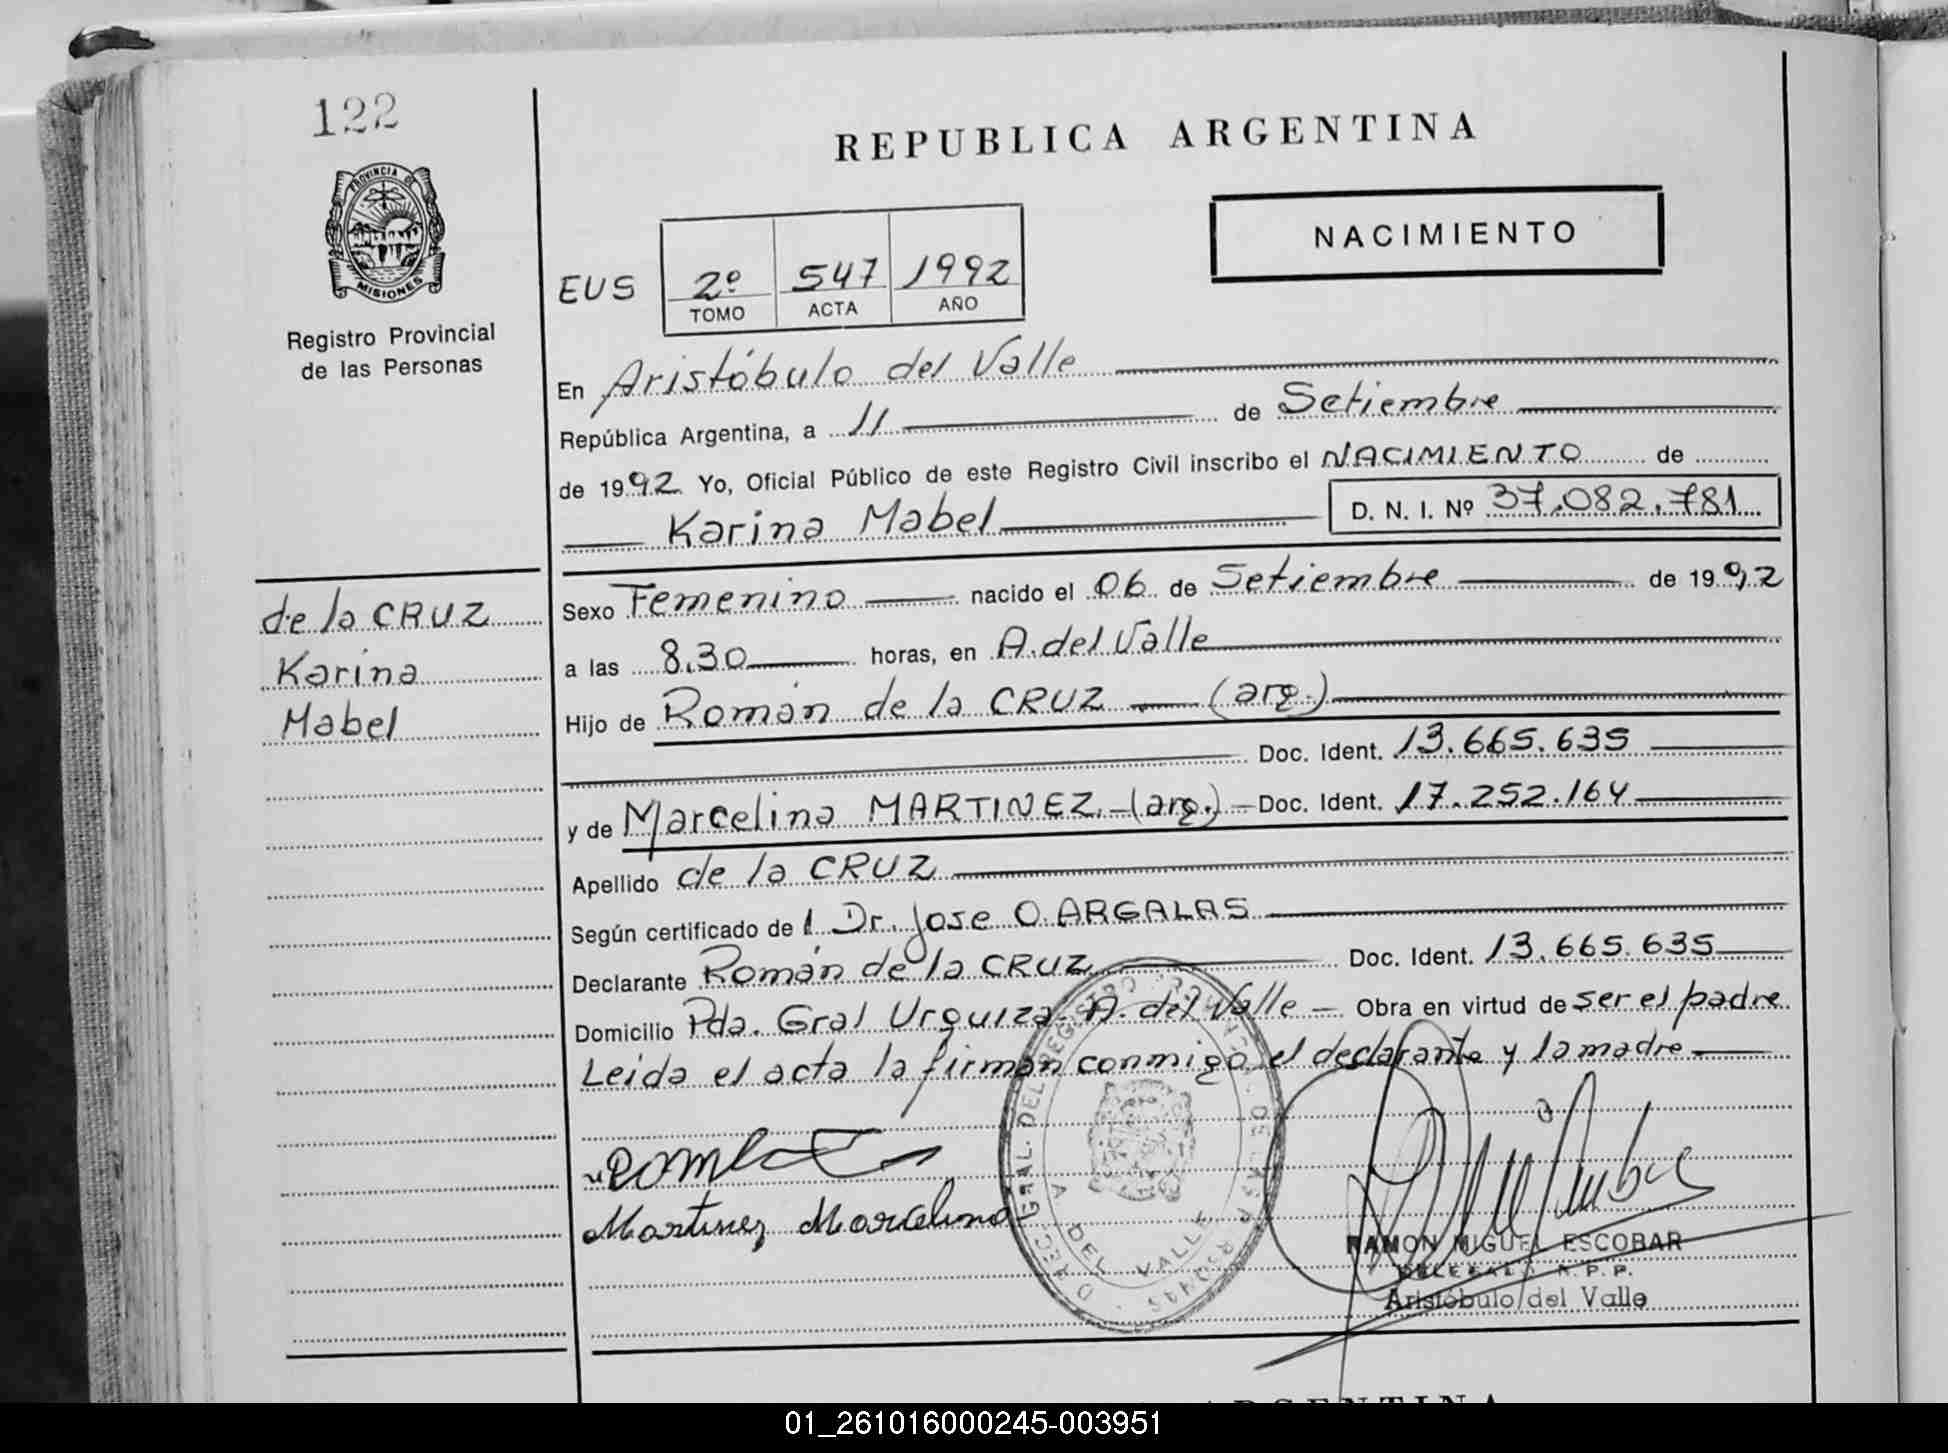 122
REPUBLICA ARGENTINA
PROVINCIA DE
MISIONES
Registro Provincial
de las Personas
NACIMIENTO
EUS 2º 547 1992
TOMO ACTA AÑO
En Aristóbulo del Valle
República Argentina, a 11 de Setiembre
de 1992 Yo, Oficial Público de este Registro Civil inscribo el NACIMIENTO de
Karina Mabel D. N. I. Nº 37.082.781
de la CRUZ
Karina
Mabel
Sexo Femenino nacido el 06 de Setiembre de 1992
a las 8.30 horas, en A. del Valle
Hijo de Román de la CRUZ (arg.)
Doc. Ident. 13.665.635
y de Marcelina MARTINEZ (arg.) Doc. Ident. 17.252.164
Apellido de la CRUZ
Según certificado del Dr. Jose O. ARGALAS
Declarante Román de la CRUZ Doc. Ident. 13.665.635
Domicilio Pda. Gral Urquiza. A. del Valle Obra en virtud de ser el padre
Leida el acta la firman conmigo el declarante y la madre
Martinez Marcelina
DIREC. GRAL. DEL REGISTRO PROVINCIAL DE LAS PERSONAS
A. DEL VALLE
RAMON MIGUEL ESCOBAR
DELEGADO R. P. P.
Aristóbulo del Valle
ARGENTINA
01_261016000245-003951